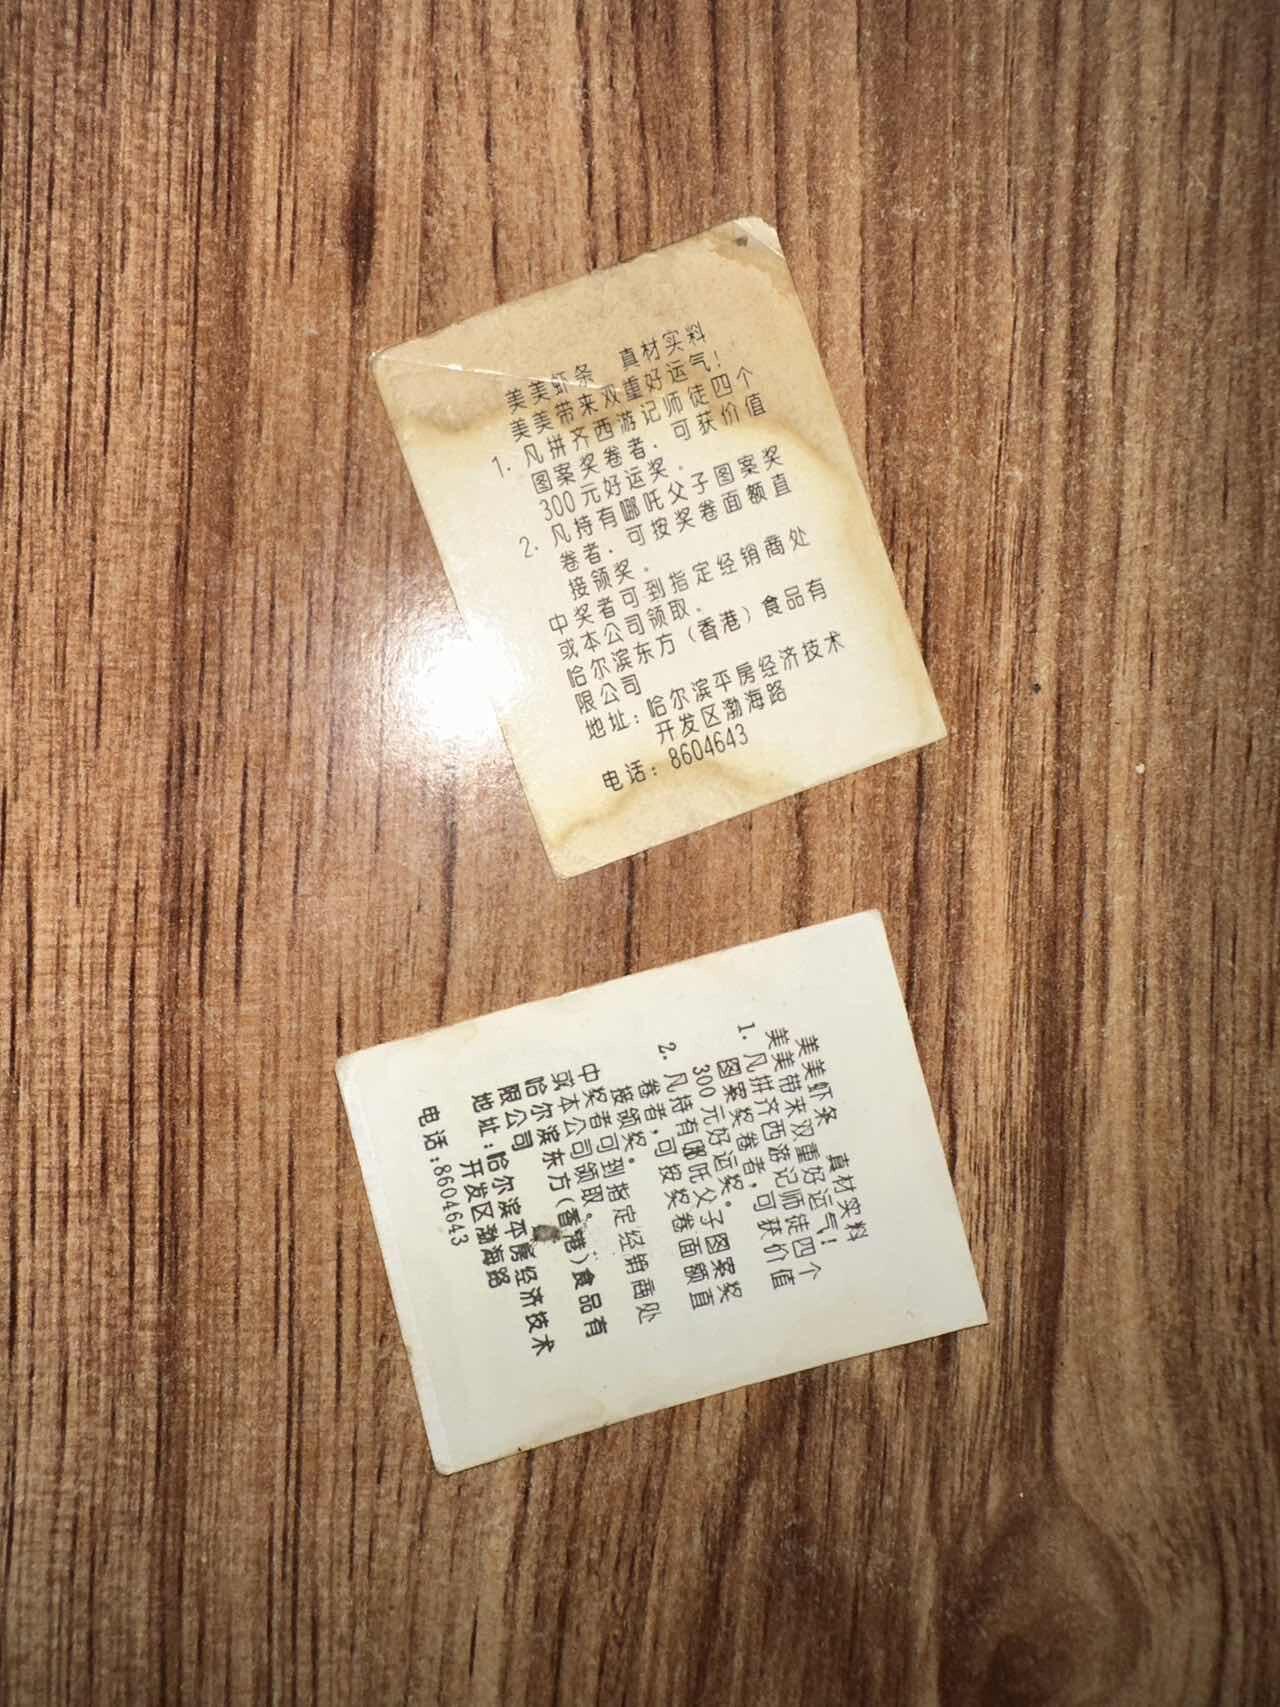 美美虾条　真材实料
美美带来双重好运气！
1. 凡拼齐西游记师徒四个
图案奖卷者，可获价值
300元好运奖。
2. 凡持有哪吒父子图案奖
卷者，可按奖卷面额直
接领奖。
中奖者可到指定经销商处
或本公司领取。
哈尔滨东方（香港）食品有
限公司
地址：哈尔滨平房经济技术
开发区渤海路
电话：8604643
美美虾条　真材实料
美美带来双重好运气！
1. 凡拼齐西游记师徒四个
图案奖卷者，可获价值
300元好运奖。
2. 凡持有哪吒父子图案奖
卷者，可按奖卷面额直
接领奖。
中奖者可到指定经销商处
或本公司领取。
哈尔滨东方（香港）食品有
限公司
地址：哈尔滨平房经济技术
开发区渤海路
电话：8604643